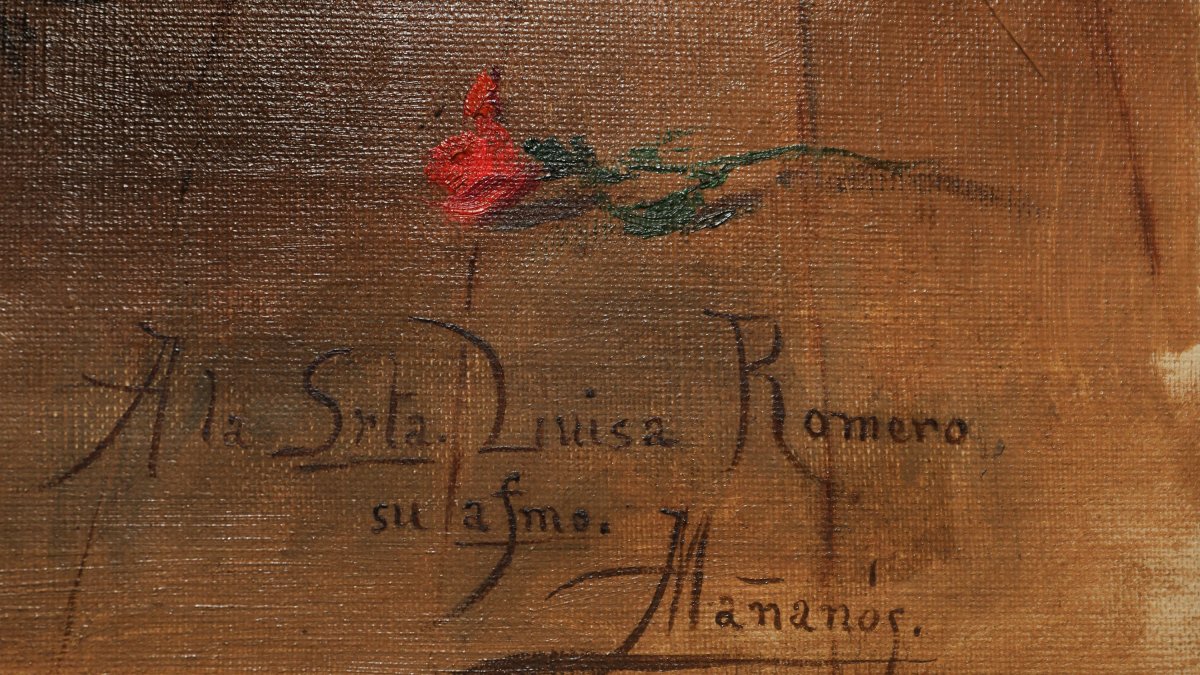 A la Srta. Luisa Romero,
su afmo.
Mañanós.